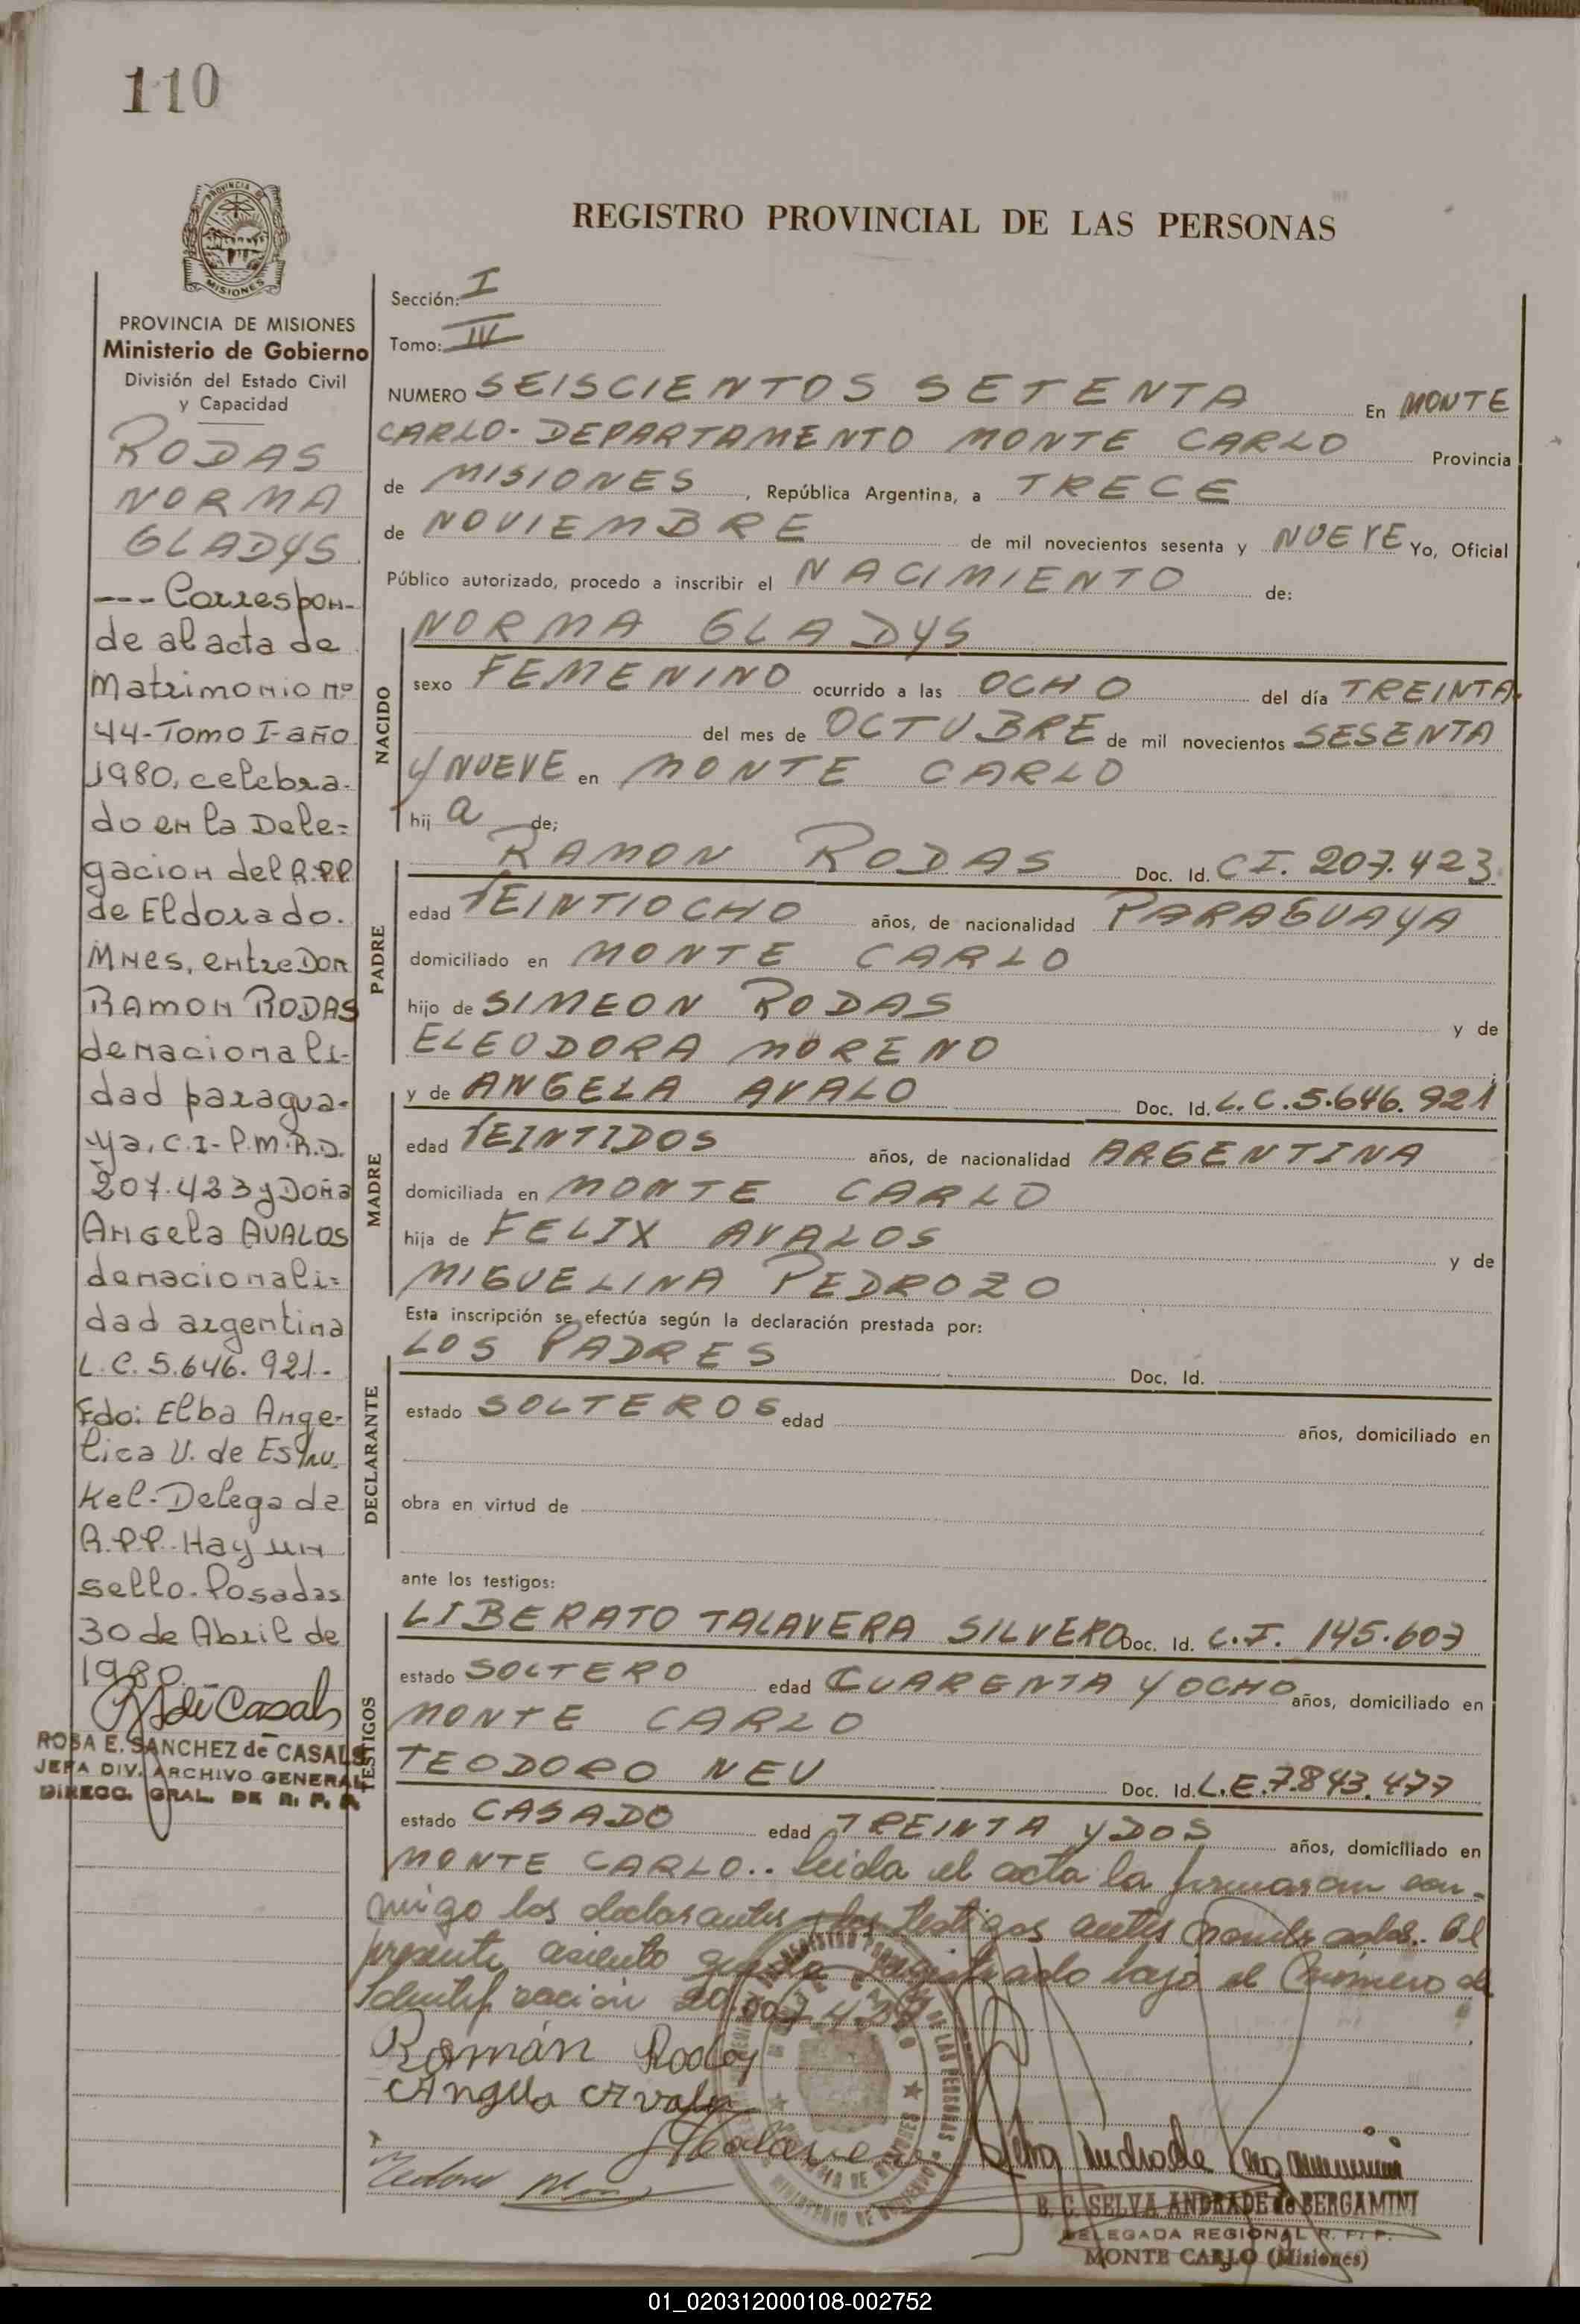 110
PROVINCIA DE
MISIONES
PROVINCIA DE MISIONES
Ministerio de Gobierno
División del Estado Civil
y Capacidad
RODAS
NORMA
GLADYS
--- Correspon-
de al acta de
Matrimonio nº
44-Tomo I-año
1980, celebra-
do en la Dele=
gacion del R.P.P.
de Eldorado.
Mnes, entre Don
RAMON RODAS
de nacionali-
dad paragua-
ya, C.I-P.M.R.D.
207.423 y Doña
Angela AVALOS
de nacionali=
dad argentina
L.C. 5.646.921-
Fdo: Elba Ange-
lica V. de
Kel-Delegada
R.P.P. Hay un
sello-Posadas
30 de Abril de
1980
de Casals
ROSA E. SANCHEZ de CASALS
JEFA DIV. ARCHIVO GENERAL
DIRECC. GRAL. DE R. P. P.
REGISTRO PROVINCIAL DE LAS PERSONAS
Sección: I
Tomo: IV
NUMERO SEISCIENTOS SETENTA En MONTE
CARLO-DEPARTAMENTO MONTE CARLO Provincia
de MISIONES, República Argentina, a TRECE
de NOVIEMBRE de mil novecientos sesenta y NUEVE Yo, Oficial
Público autorizado, procedo a inscribir el NACIMIENTO de:
NACIDO
NORMA GLADYS
sexo FEMENINO ocurrido a las OCHO del día TREINTA
del mes de OCTUBRE de mil novecientos SESENTA
Y NUEVE en MONTE CARLO
hij a de;
PADRE
RAMON RODAS Doc. Id. C I. 207.423
edad VEINTIOCHO años, de nacionalidad PARAGUAYA
domiciliado en MONTE CARLO
hijo de SIMEON RODAS y de
ELEODORA MORENO
MADRE
y de ANGELA AVALO Doc. Id. L.C.5.646.921
edad VEINTIDOS años, de nacionalidad ARGENTINA
domiciliada en MONTE CARLO
hija de FELIX AVALOS y de
MIGUELINA PEDROZO
Esta inscripción se efectúa según la declaración prestada por:
DECLARANTE
LOS PADRES Doc. Id.
estado SOLTEROS edad años, domiciliado en
obra en virtud de
ante los testigos:
TESTIGOS
LIBERATO TALAVERA SILVERO Doc. Id. C.I. 145.607
estado SOLTERO edad CUARENTA Y OCHO años, domiciliado en
MONTE CARLO
TEODORO NEU Doc. Id. L.E.7.843.477
estado CASADO edad TREINTA Y DOS años, domiciliado en
MONTE CARLO.. leida el acta la firmaron con-
migo los declarantes y los testigos antes nombrados. El
presente asiento queda registrado bajo el numero de
Identificación
Ramón Rodas
Angela Avalo
Selva Andrade Bergamini
B. C. SELVA ANDRADE de BERGAMINI
DELEGADA REGIONAL R. P. P.
MONTE CARLO (Misiones)
01_020312000108-002752